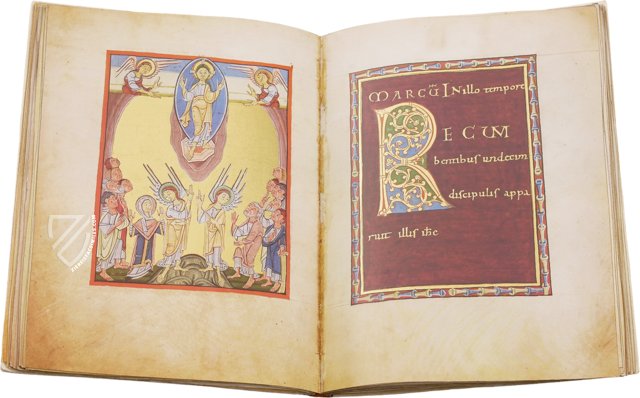 MARCŪ IN illo tempore
RECUM
bentibus undecim
discipulis appa
ruit illis ihc
ZIEREISFACSIMILES.COM